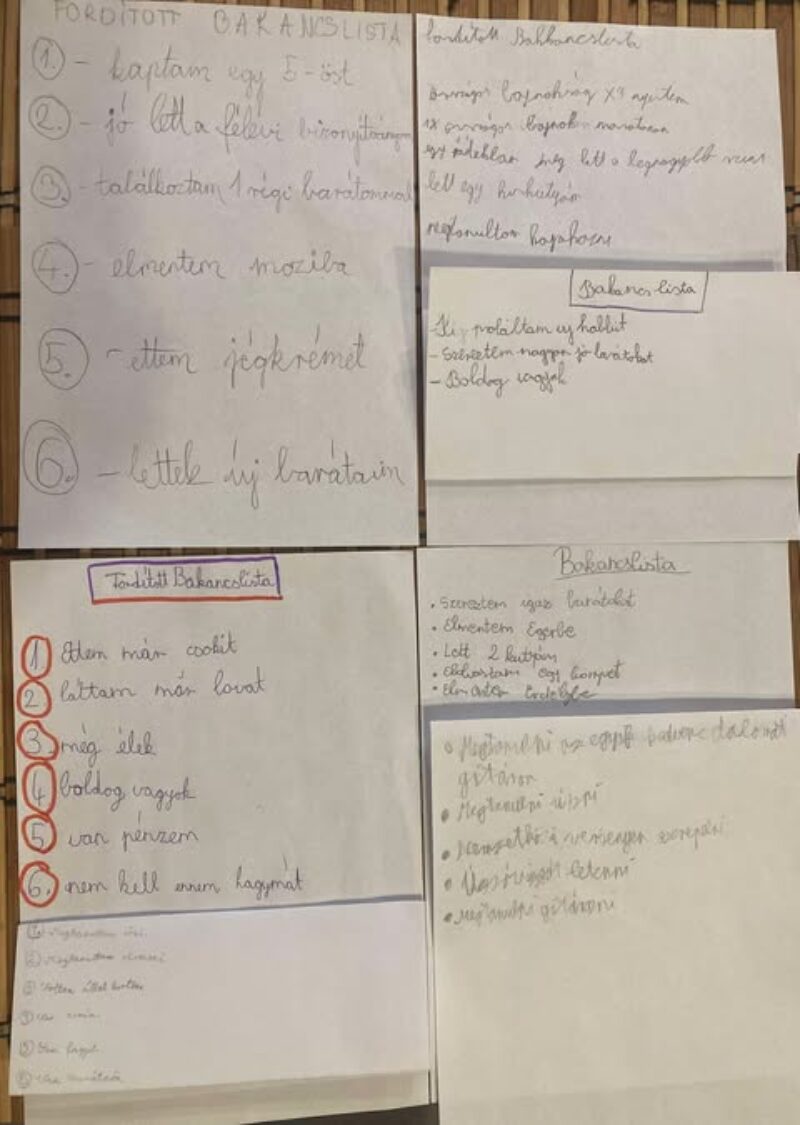 FORDÍTOTT BAKANCSLISTA
1. - kaptam egy 5-öst
2. - jó lett a félévi bizonyítványom
3. - találkoztam 1 régi barátommal
4. - elmentem moziba
5. - ettem jégkrémet
6. - lettek új barátaim
fordított Bakkancslista
országos bajnokság X3 nyertem
1x országos bajnok maratonon
meg lett a legnagyobb
lett egy
megtanultam
Bakancslista
- Ki próbáltam új hobbit
- Szereztem nagyon jó barátokat
- Boldog vagyok
Fordított Bakancslista
1 Ettem már cookit
2 láttam már lovat
3. még élek
4 boldog vagyok
5 van pénzem
6. nem kell ennem hagymát
Bakancslista
• Szereztem igaz barátokat
• Elmentem Egerbe
• Lett 2 kutyám
• Elolvastam egy könyvet
• Elmentem Erdélybe
• Megtanulni az egyik kedvenc dalomat
gitáron
• Megtanulni úszni
• versenyen szerepelni
•
• Megtanulni gitározni
1 Megtanultam írni
2 Megtanultam olvasni
3 Voltam
4 Van
5
6 Van